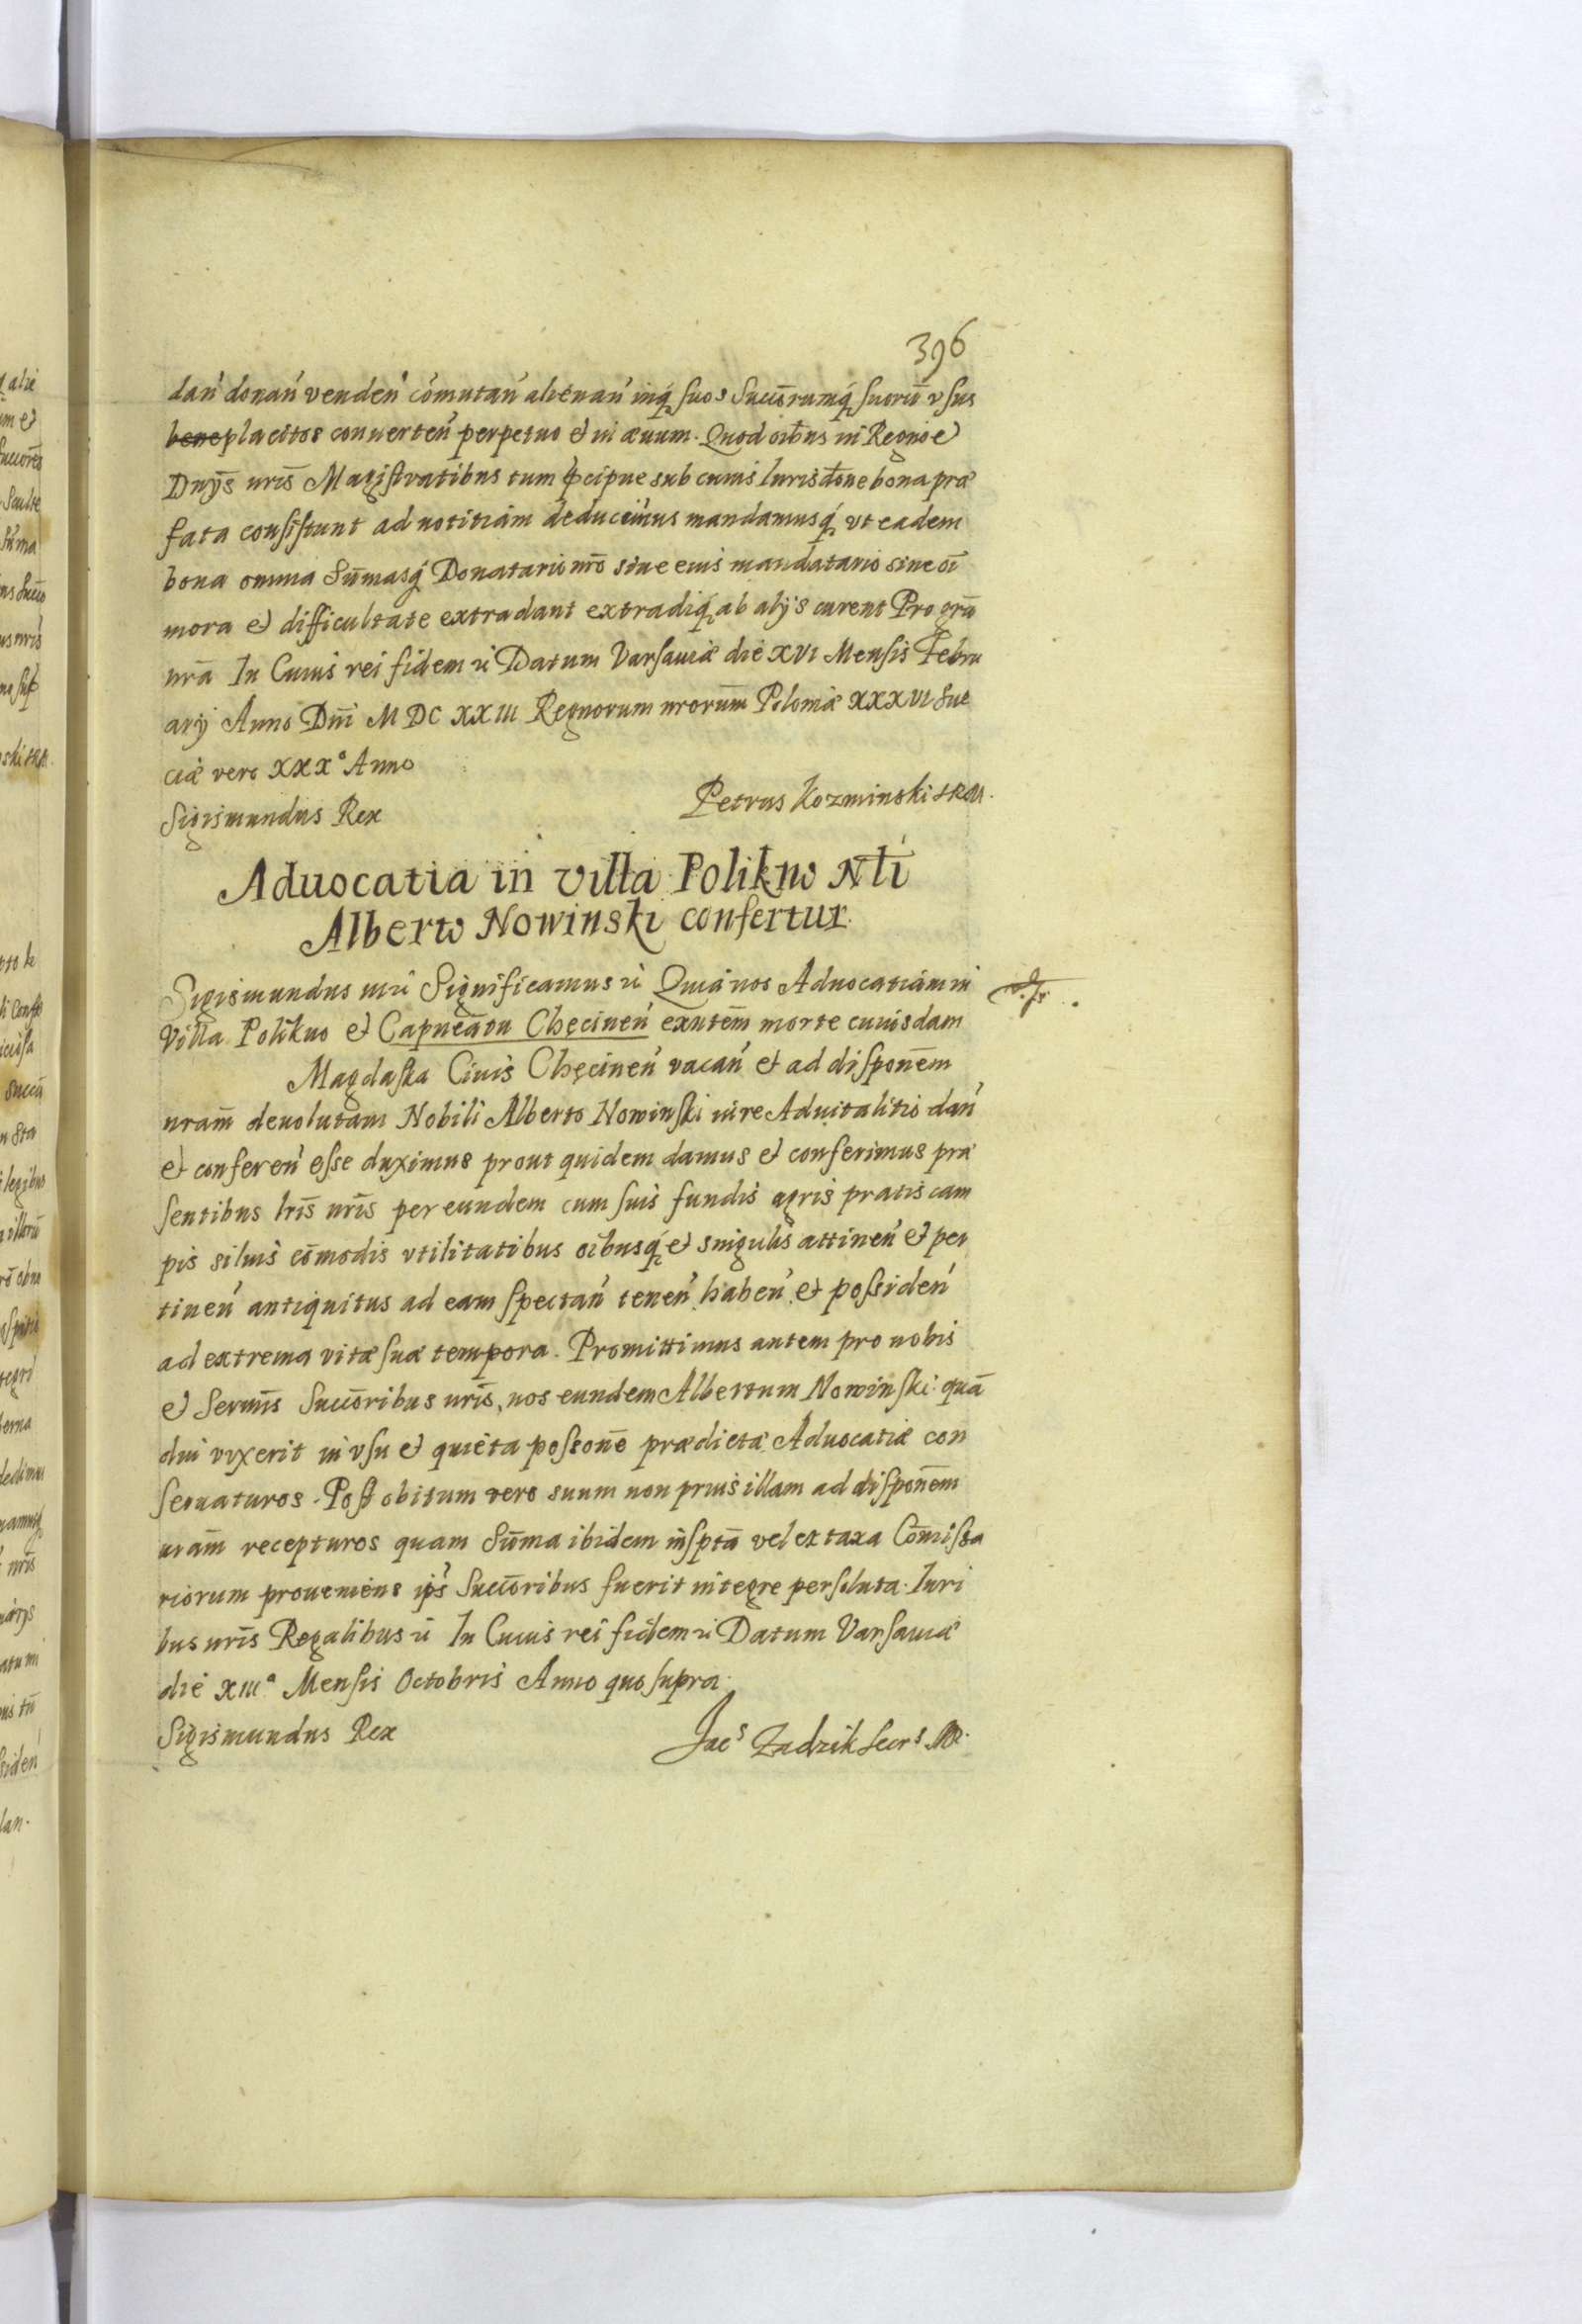 396
dan̄ donan̄ venden̄ com̄utan̄ alienan̄ inq̨ suos Succ̄orumq̨ suorū vsus
beneplacitos conuerten̄ perpetuo et in æuum. Quod oībus in Regno et
Dnijs nrīs Magistratibus tum p̄cipue sub cuius Iurisdōne bona præ
fata consistunt ad notitiam deducimus mandamusq̨ vt eadem
bona omnia Sūmasq̨ Donatario nrō siue eius mandatario sine oī
mora et difficultate extradant extradiq̨ ab alijs curent Pro grā
nrā In Cuius rei fidem ii Datum Varsauiæ die XVI Mensis Febru
arij Anno Dnī M DC XXIII Regnorum nrorūm Poloniæ XXXVI Sue
ciæ vero XXXº Anno
Sigismundus Rex
Petrus Kozminski
Aduocatia in villa Polikno Nli
Alberto Nowinski confertur.
Sigismundus iii ii Significamus ii Quia nos Aduocatiam in
Villa Polikno et Capneātu Chęcinen̄ exñtēm morte cuiusdam
Magdaska Ciuis Chęcinen̄ vacan̄ et ad disponēm
nram̄ deuolutam Nobili Alberto Nowinski iure Aduitalitio dan̄
et conferen̄ esse duximus prout quidem damus et conferimus præ
sentibus lrīs nrīs per eundem cum suis fundis agris pratis cam
pis siluis cōmodis vtilitatibus oībusq̨ et singulis attinen̄ et per
tinen̄ antiquitus ad eam spectan̄ tenen̄ haben̄ et possiden̄
ad extrema vitæ suæ tempora. Promittimus autem pro nobis
et Sermīs Succ̄oribus nrīs, nos eundem Albertum Nowinski quā
diu vixerit in vsu et quieta possōne prædictæ Aduocatiæ con
seruaturos. Post obitum vero suum non prius illam ad disponēm
nram̄ recepturos quam Sūma ibidem insp̄tā vel ex taxa Cōmissa
riorum proueniens ip̄s Succ̄oribus fuerit integre persoluta. Iuri
bus nrīs Regalibus ii In Cuius rei fidem ii Datum Varsauiæ
die XIIIª Mensis Octobris Anno quo supra.
Sigismundus Rex
Jacs Zadzik Secrs